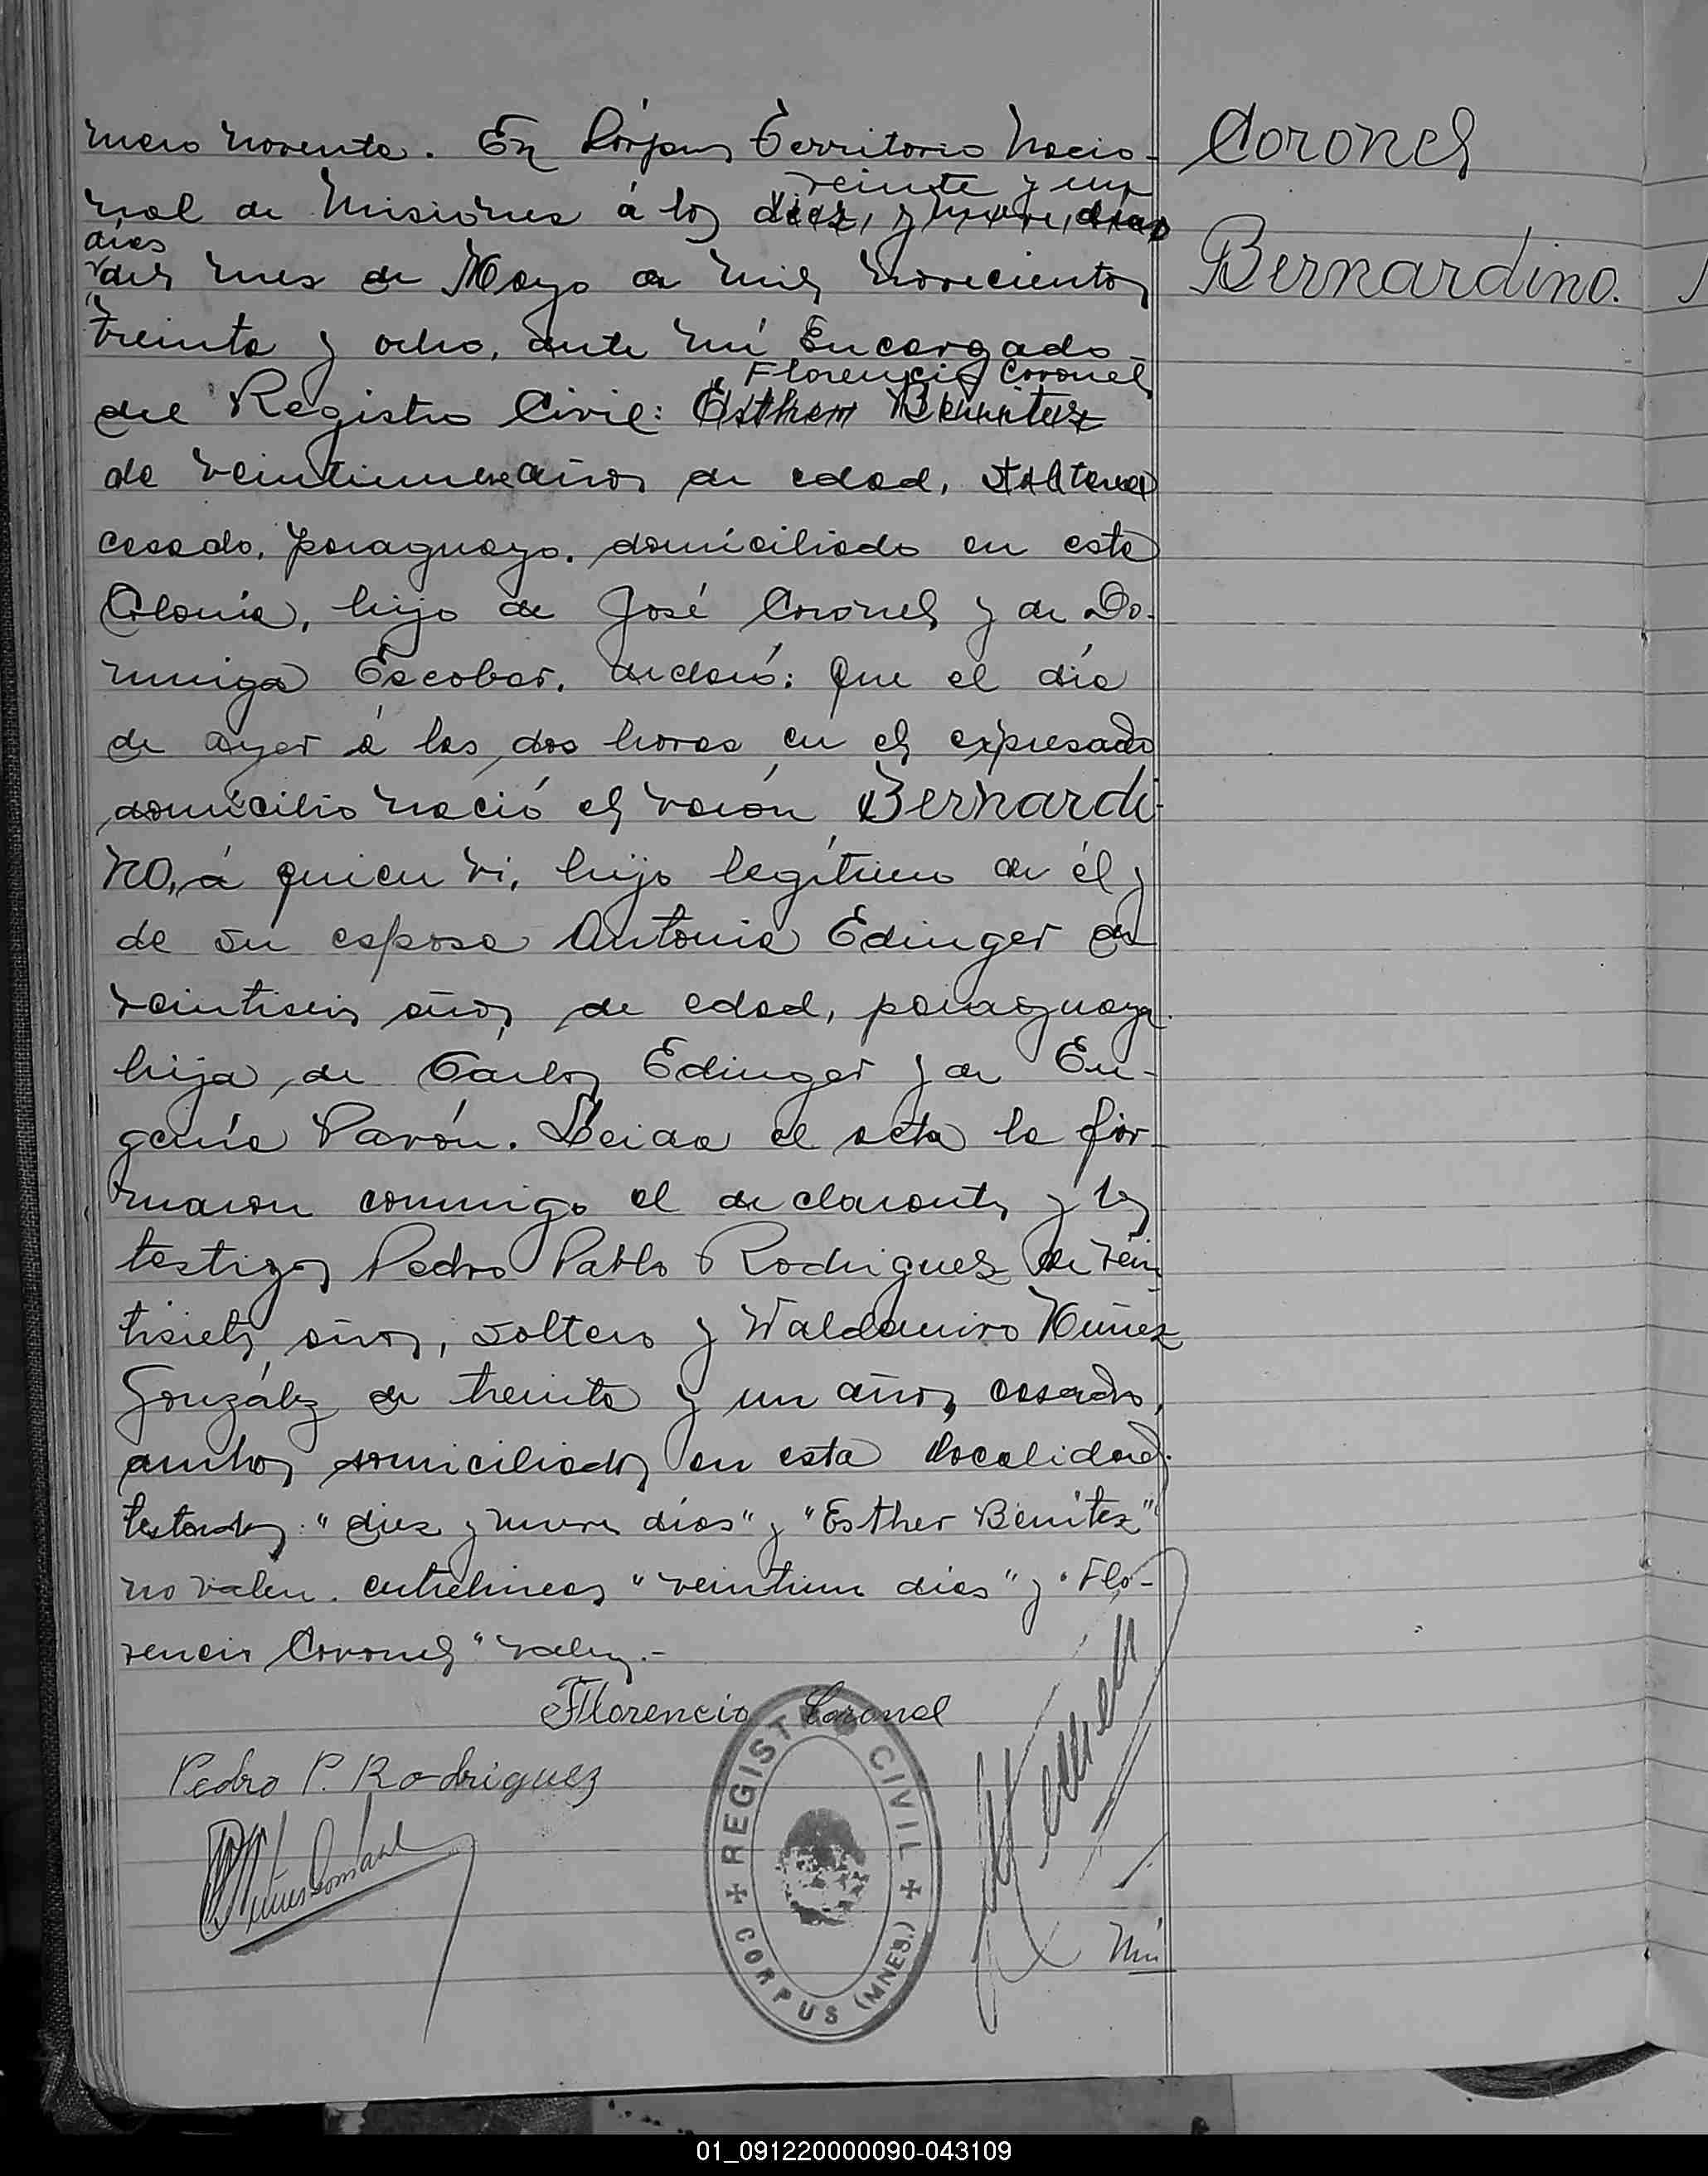 mero noventa. En Córpus Territorio Nacio-
veinte y un
nal de Misiones á los diez, y nueve, días
días
del mes de Mayo de mil novecientos
treinta y ocho, ante mí Encargado
Florencio Coronel
del Registro Civil: Esther Benitez
de veintinueve años de edad, soltera
casado, paraguayo, domiciliado en esta
Colonia, hijo de José Coronel y de Do-
minga Escobar, declaró: Que el día
de ayer á las dos horas en el expresado
domicilio nació el varón Bernardi-
no, á quien vi, hijo legítimo de él y
de su esposa Antonia Edinger de
veintiseis años de edad, paraguaya
hija de Carlos Edinger y de Eu-
genia Pavón. Leida el acta la fir-
maron conmigo el declarante y los
testigos Pedro Pablo Rodriguez de vein
tisiete años, soltero y Waldemiro Núñez
González de treinta y un años, casado,
ambos domiciliados en esta localidad.
testados: "diez y nueve días" y "Esther Benítez"
no valen. entrelineas "veintiun dias" y "Flo-
rencio Coronel" valen.-
Coronel
Bernardino.
Florencio Coronel
Pedro P. Rodriguez
REGISTRO CIVIL
CORPUS (MNES.)
01_091220000090-043109